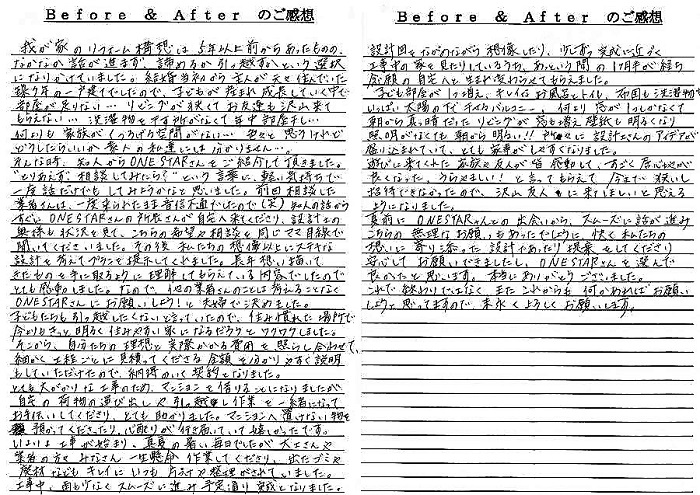 Before & After のご感想
我が家のリフォーム構想は5年以上前からあったものの、
なかなか話が進まず、諦めるか引っ越すかという選択
になりかけていました。結婚当初から主人が大切に住んでいた
築9年の一戸建てでしたので、子どもが産まれ成長していく中で
部屋が足りない… リビングが狭くてお友達も沢山来て
もらえない… 洗濯物を干す所がなくて年中部屋干し…
何よりも家族がくつろげる空間がない… 色々と思うけれど
どうしたらいいか素人の私達には分かりません…。
そんな時、知人からONE STARさんをご紹介して頂きました。
"とりあえず相談してみたら?"という言葉に、軽い気持ちで
一度話だけでもしてみようかなと思いました。前回相談した
業者さんは、一度来られたまま音信不通でしたので(笑) 知人の話から
すぐにONESTARさんの所長さんが自宅へ来てくださり、設計士の
奥様も状況を見て、こちらの希望や相談を同じママ目線で
聞いてくださいました。その後私たちの想像以上にステキな
設計を考えてプランを提示してくれました。長年想い描いて
きたものを手に取るように理解してもらえている内容でしたので
とても感動しました。なので、他の業者さんのことは考えることなく
ONESTARさんにお願いしよう!と夫婦で決めました。
子どもたちも引っ越したくないと言っていたので、住み慣れた場所で
今よりもっと明るく住みやすい家になるだろうとワクワクしました。
そこから、自分たちの理想と実際かかる費用を照らし合わせて、
細かく工程ごとに見積ってくださる金額を分かりやすく説明
もしていただけたので、納得のいく契約となりました。
とても大がかりな工事のため、マンションを借りることになりましたが
自宅の荷物の運び出しや引っ越し作業を一緒になって
お手伝いしてくださり、とても助かりました。マンションへ置けない物を
預かってくださったり、心配りが行き届いていて嬉しかったです。
いよいよ工事が始まり、真夏の暑い毎日でしたが大工さんや
業者の方々みなさん一生懸命作業してくださり、出たゴミや
廃材などもキレイにいつも片づけや整理がされていました。
工事中、雨もげなくスムーズに進み予定通り完成となりました。
Before & After のご感想
設計図をながめながら想像したり、少しずつ完成に近づく
工事中の家を見たりしているうち、あっという間の1ヶ月半が経ち
念願の自宅へと生まれ変わらせてもらえました。
子ども部屋が1つ増え、キレイなお風呂とトイレ、布団も洗濯物も
いっぱい太陽の下で干せるバルコニー、何より窓が1つしかなくて
朝から真っ暗だったリビングが窓も増え壁紙も明るくなり
照明がなくても朝から明るい!! 所々に設計士さんのアイデアが
盛り込まれていて、とても家事がしやすくなりました。
遊びに来てくれた家族や友人が皆感動して、すごく居心地が
良くなった、うらやましい!と言ってもらえて 今まで狭いし
招待できなかったので、沢山友人に来てほしいと思える
ようになりました。
真剣に ONESTARさんとの出会いから、スムーズに話が進み
こちらの無理なお願いもあったでしょうに、快く私たちの
想いに寄り添った設計であったり提案をしてくださり
安心してお願いできましたし、ONESTARさんを選んで
良かったと思います。本当にありがとうございました。
これで終わりではなく、またこれからも何かあればお願い
しようと思ってますので、末永くよろしくお願いします。